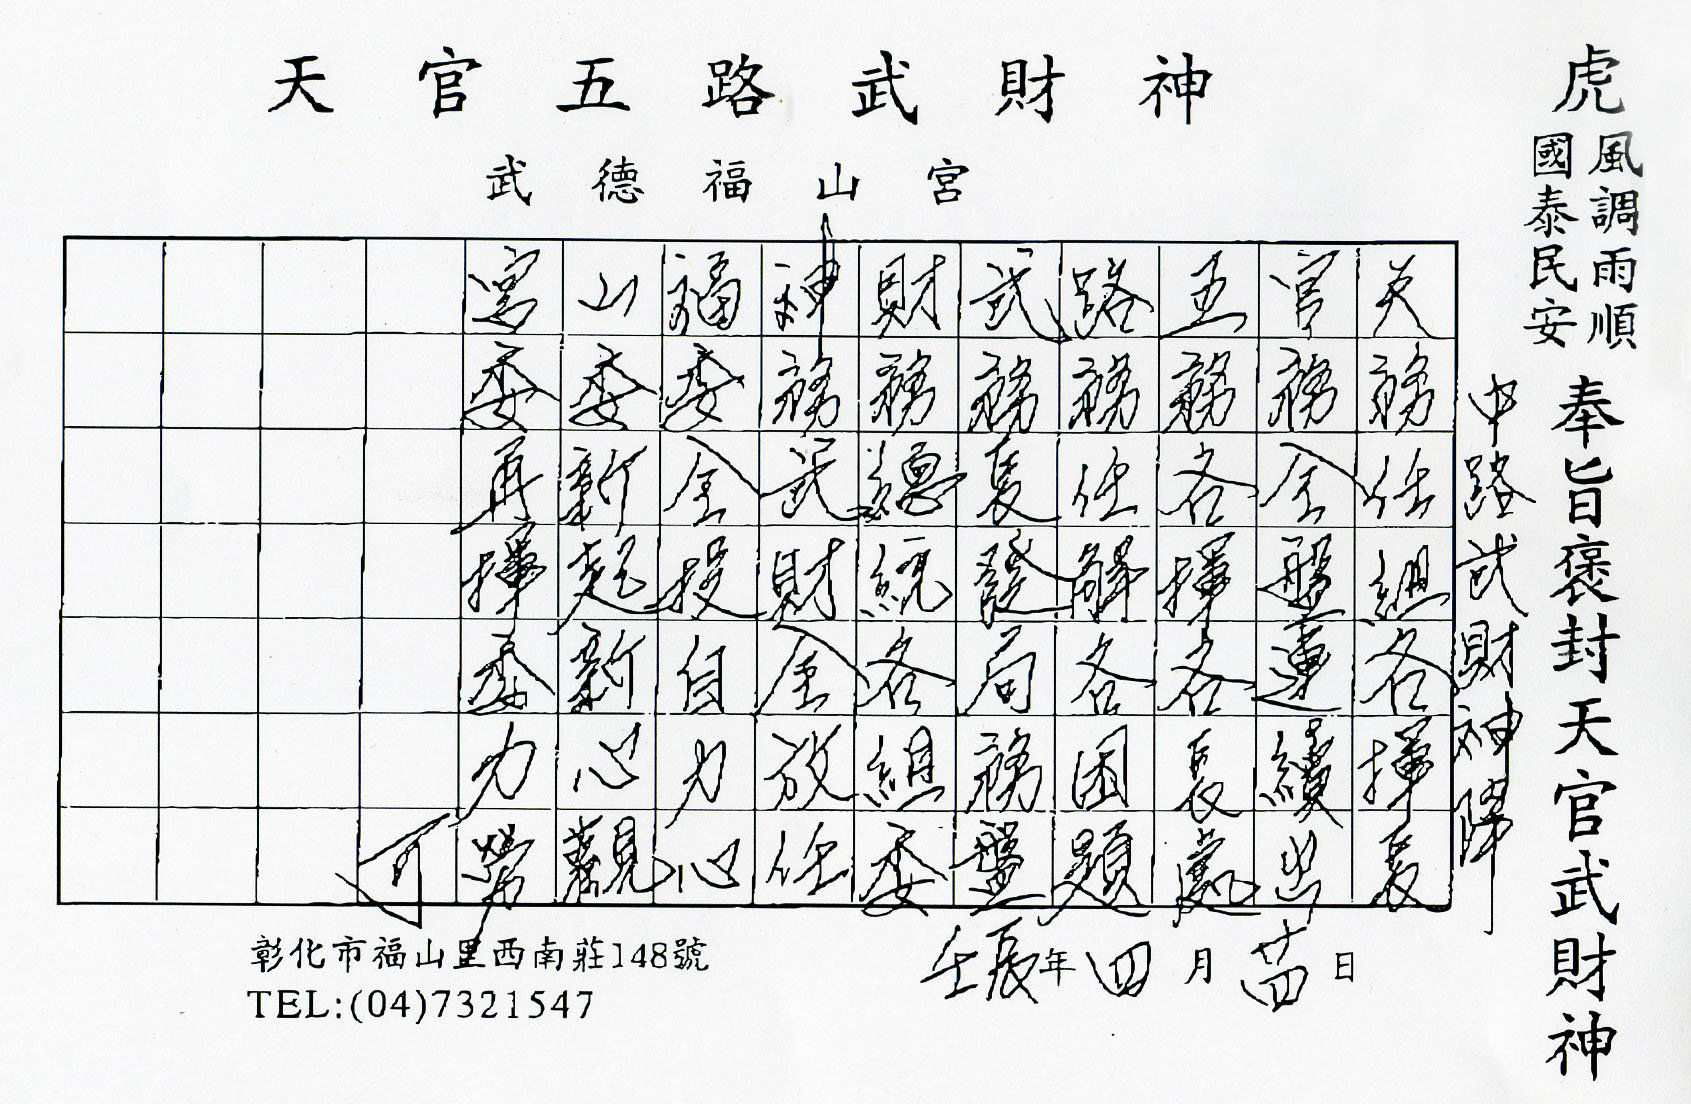 天官五路武財神
武德福山宮
虎
風調雨順
國泰民安
奉旨褒封天官武財神
中路武財神降
天務任組各揮長
官務全盤運續出
五務各揮各長處
路務任解各困題
武務長發局務盤
財務總統各組委
神務武財全放任
福委全投自力心
山委新起新心觀
宮委再揮委力勞
可
壬辰年四月廿四日
彰化市福山里西南莊148號
TEL:(04)7321547